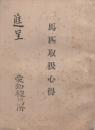 馬匹取扱心得
進呈
愛知縣